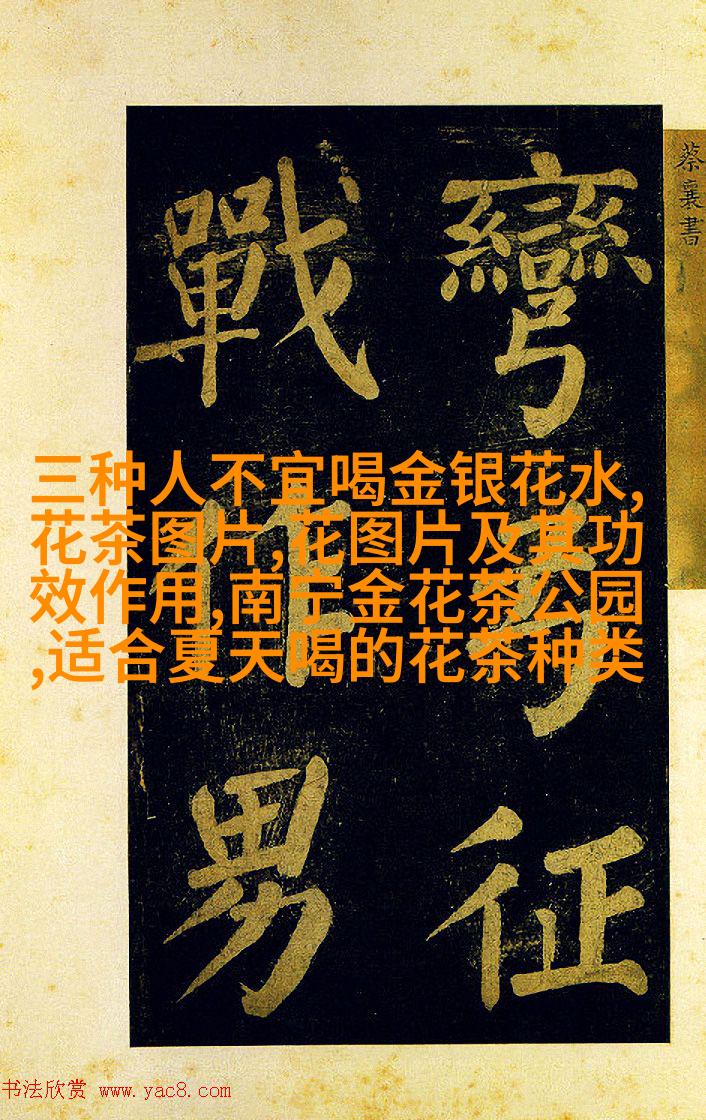 蔡襄書
彎弓征
戰作男
三种人不宜喝金银花水,
花茶图片,花图片及其功
效作用,南宁金花茶公园
,适合夏天喝的花茶种类
书法欣赏 www.yac8.com